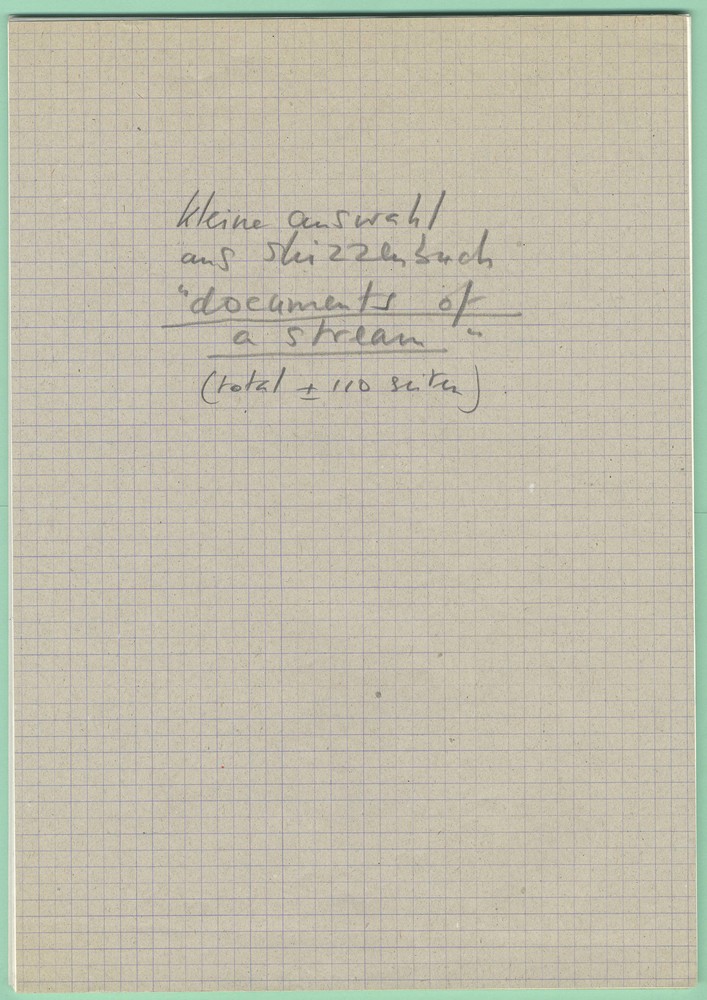 kleine auswahl
aus skizzenbuch
"documents of
a stream"
(total ± 110 seiten)